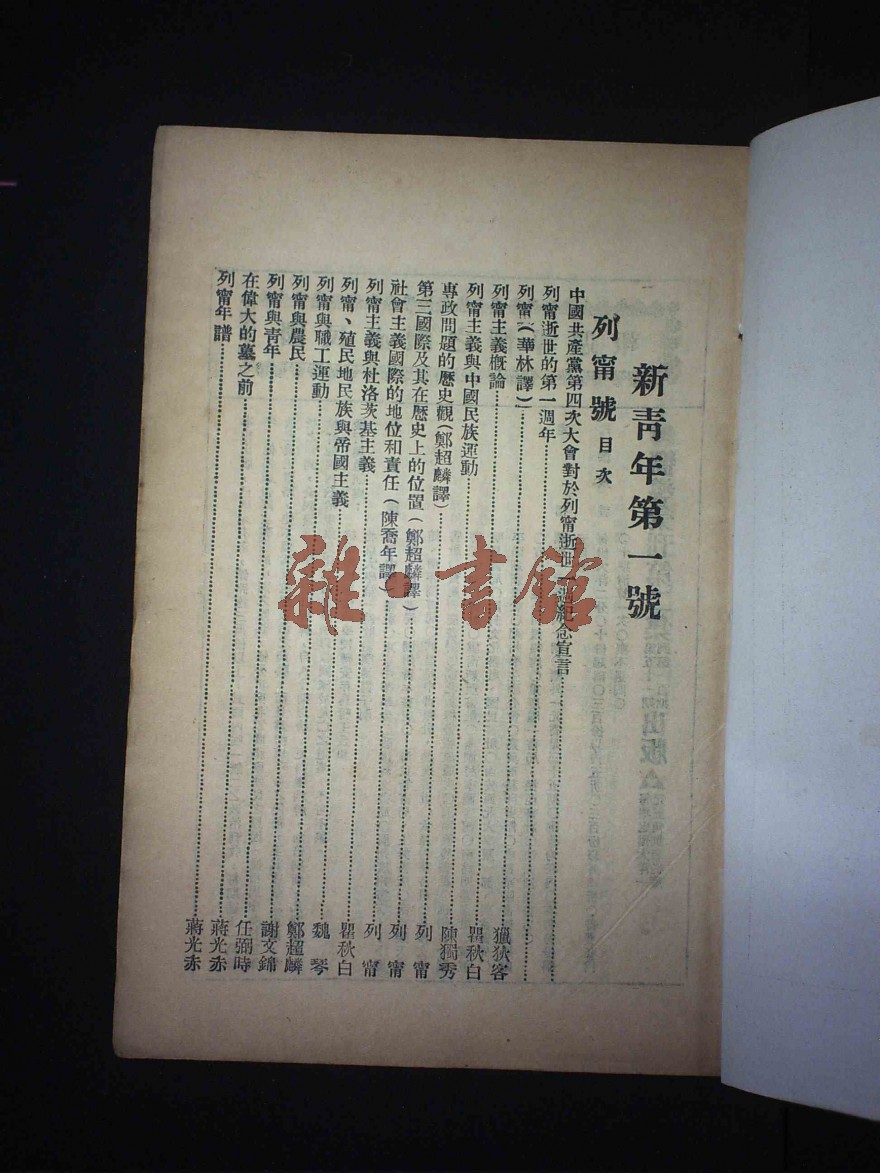 新靑年第一號
列甯號 目次
中國共產黨第四次大會對於列甯逝世一週紀念宣言
列甯逝世的第一週年
列甯(華林譯) 獵狄客
列甯主義概論 瞿秋白
列甯主義與中國民族運動 陳獨秀
專政問題的歷史觀(鄭超麟譯) 列甯
第三國際及其在歷史上的位置(鄭超麟譯) 列甯
社會主義國際的地位和責任(陳喬年譯) 列甯
列甯主義與杜洛茨基主義 瞿秋白
列甯、殖民地民族與帝國主義 魏琴
列甯與職工運動 鄭超麟
列甯與農民 謝文錦
列甯與靑年 任弼時
在偉大的墓之前 蔣光赤
列甯年譜 蔣光赤
雜·書館